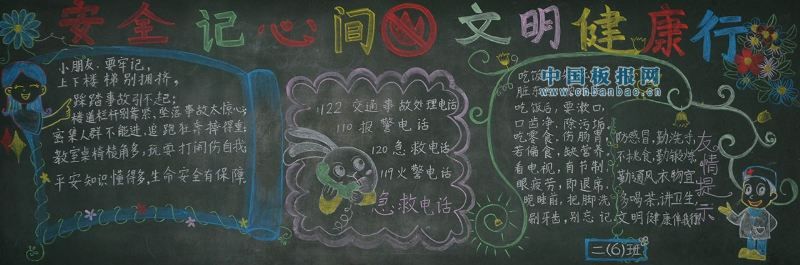 安全记心间 文明健康行
小朋友,要牢记,
上下楼梯别拥挤,
踩踏事故引不起;
楼道栏杆别攀爬,坠落事故太惊心
密集人群不能进,追跑狂奔摔得重
教室桌椅棱角多,玩耍打闹伤自我
平安知识懂得多,生命安全有保障.
122 交通事故处理电话
110 报警电话
120 急救电话
119 火警电话
急救电话
中国板报网
www.cnbanbao.cn
吃饭
脏东
吃饭后,要漱口,
口齿净,除污垢
吃零食,伤肠胃
若偏食,缺营养
看电视,首节制
眼疲劳,即退席,
晚睡前,把脚洗
刷牙齿,别忘记
防感冒,勤洗手,
不挑食,勤锻炼,
勤通风,衣物宜,
多喝茶,讲卫生,
文明健康伴我行
友情提示
二(6)班